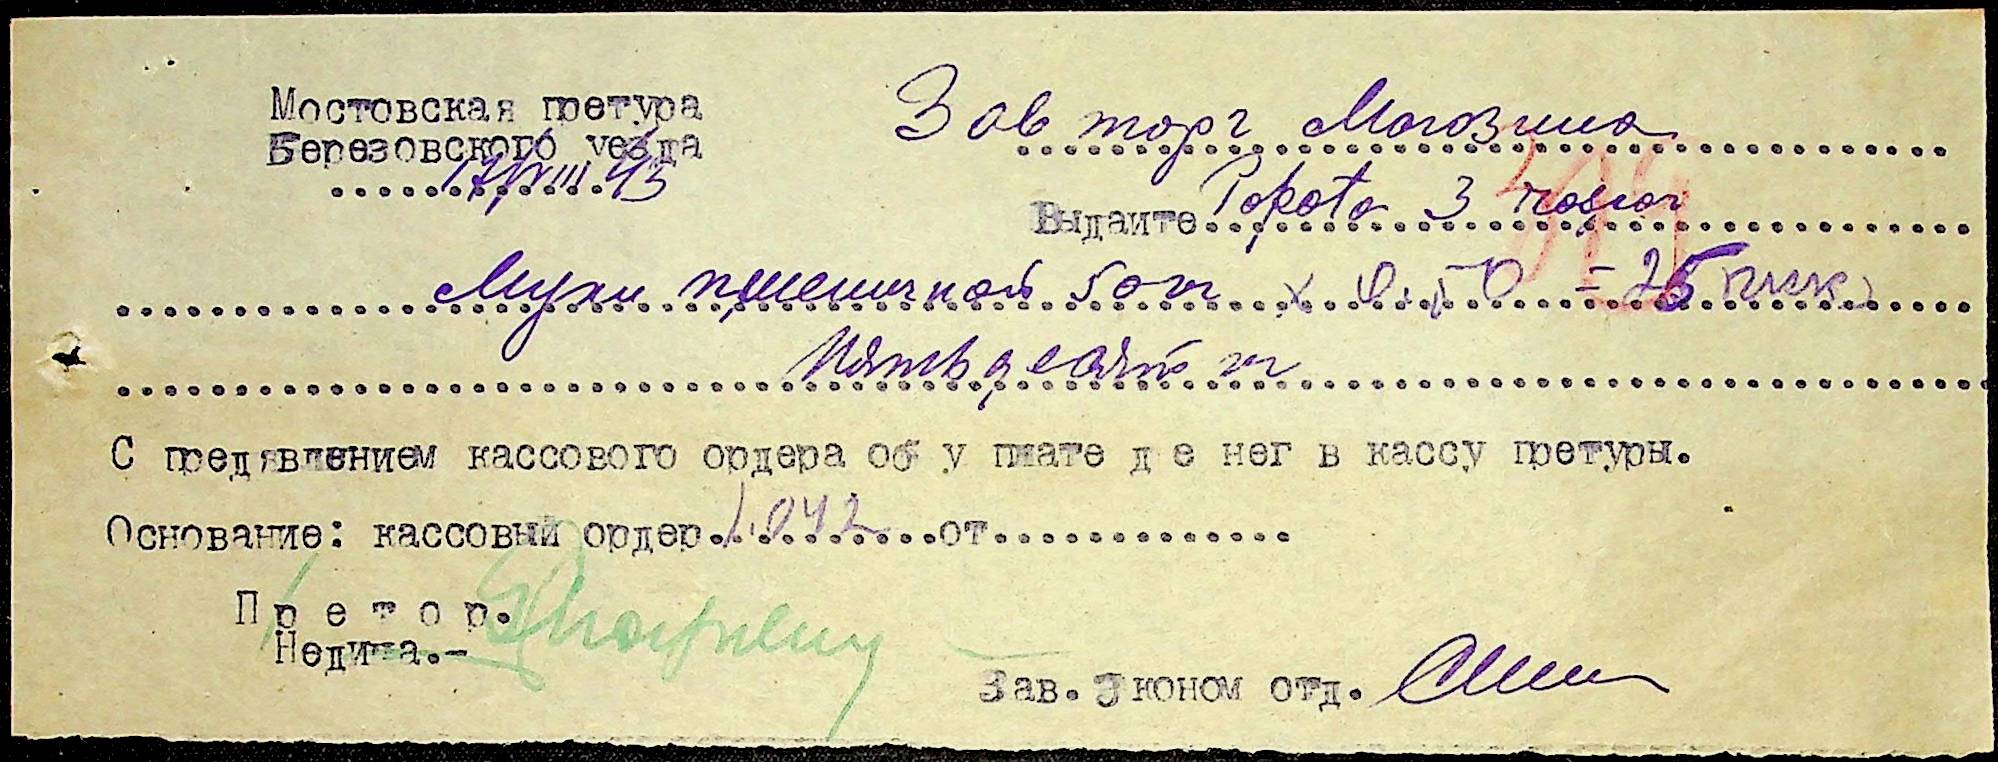 Мостовская претура
Березовского уезда
17/VIII.43
Зав торг Магозина
Выдаите Рокота 3
Муки пшеничной 50 кг х 0.50 = 25 марк
Пятьдесят кг
С предявлением кассового ордера об у плате д е нег в кассу претуры.
Основание: кассовый ордер 1.042 от
П р е т о р.
Недича.-
Зав. Эконом отд.